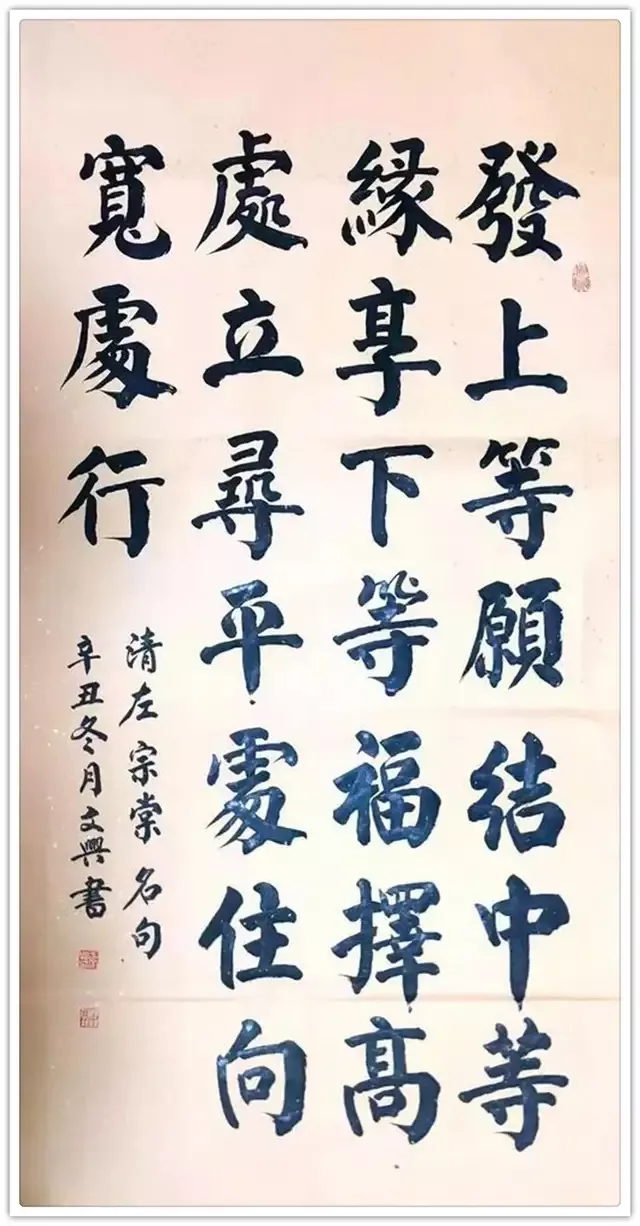 發上等願結中等
緣享下等福擇高
處立尋平處住向
寬處行
清左宗棠名句
辛丑冬月文興書